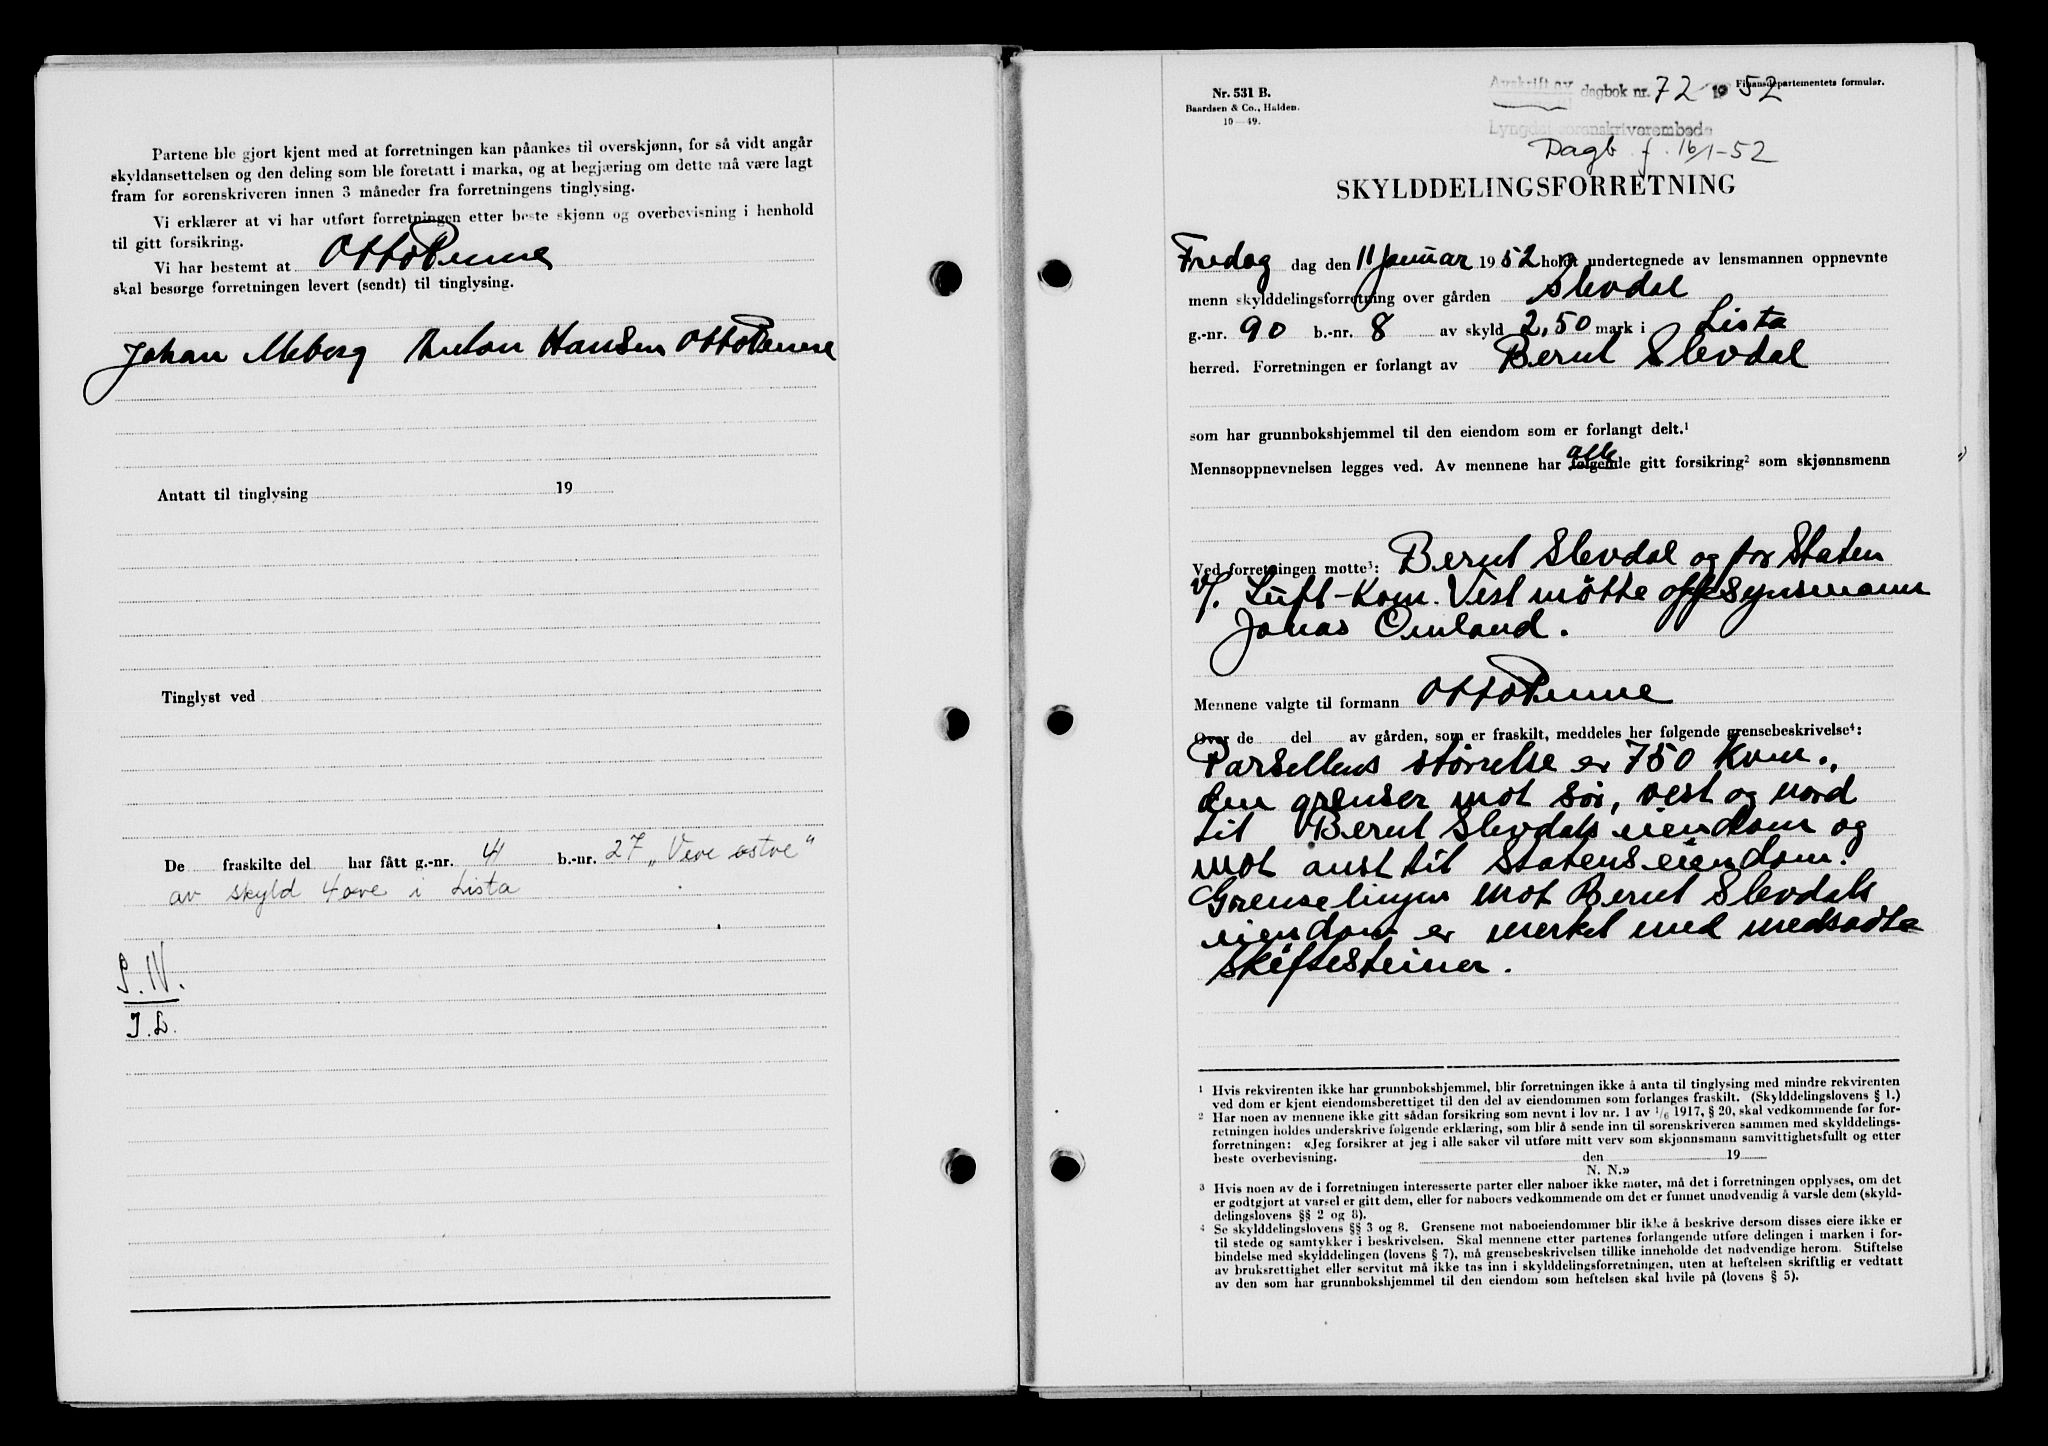 Partene ble gjort kjent med at forretningen kan påankes til overskjønn, for så vidt angår
skyldansettelsen og den deling som ble foretatt i marka, og at begjæring om dette må være lagt
fram for sorenskriveren innen 3 måneder fra forretningens tinglysing.
Vi erklærer at vi har utført forretningen etter beste skjønn og overbevisning i henhold
til gitt forsikring.
Vi har bestemt at Otto Penne
skal besørge forretningen levert (sendt) til tinglysing.
Johan Meberg Anton Hansen Otto Penne
Antatt til tinglysing 19
Tinglyst ved
De fraskilte del har fått g.-nr. 41 b.-nr. 27 „Vere østre"
av skyld 4 øre i Lista
P. IV.
J. L.
Nr. 531 B.
Baardsen & Co., Halden.
10—49.
Avskrift av dagbok nr. 72 19 52 Finansdepartementets formular.
Lyngdal sorenskriverembede
Dagb. f. 16/1-52
SKYLDDELINGSFORRETNING
Fredag dag den 11 Januar 1952 holdt undertegnede av lensmannen oppnevnte
menn skylddelingsforretning over gården Slevdal
g.-nr. 90 b.-nr. 8 av skyld 2,50 mark i Lista
herred. Forretningen er forlangt av Bernt Slevdal
som har grunnbokshjemmel til den eiendom som er forlangt delt.¹
alle
Mennsoppnevnelsen legges ved. Av mennene har følgende gitt forsikring² som skjønnsmenn
Ved forretningen møtte³: Bernt Slevdal og for Staten
v/. Luft-Kom. Vest møtte off. synsmann
Jonas Omland.
Mennene valgte til formann Otto Penne
Over de del av gården, som er fraskilt, meddeles her følgende grensebeskrivelse⁴:
Parsellens størrelse er 750 Kvm.,
den grenser mot sør, vest og nord
til Bernt Slevdals eiendom og
mot aust til Statens eiendom.
Grenselinjen mot Bernt Slevdals
eiendom er merket med nedsadte
skiftesteiner.
¹ Hvis rekvirenten ikke har grunnbokshjemmel, blir forretningen ikke å anta til tinglysing med mindre rekvirenten
ved dom er kjent eiendomsberettiget til den del av eiendommen som forlanges fraskilt. (Skylddelingslovens § 1.)
² Har noen av mennene ikke gitt sådan forsikring som nevnt i lov nr. 1 av 1/6 1917, § 20, skal vedkommende før for-
retningen holdes underskrive følgende erklæring, som blir å sende inn til sorenskriveren sammen med skylddelings-
forretningen: «Jeg forsikrer at jeg i alle saker vil utføre mitt verv som skjønnsmann samvittighetsfullt og etter
beste overbevisning. den 19
N. N.»
³ Hvis noen av de i forretningen interesserte parter eller naboer ikke møter, må det i forretningen opplyses, om det
er godtgjort at varsel er gitt dem, eller for naboers vedkommende om det er funnet unødvendig å varsle dem (skyld-
delingslovens §§ 2 og 8).
⁴ Se skylddelingslovens §§ 3 og 8. Grensene mot naboeiendommer blir ikke å beskrive dersom disses eiere ikke er
til stede og samtykker i beskrivelsen. Skal mennene etter partenes forlangende utføre delingen i marken i for-
bindelse med skylddelingen (lovens § 7), må grensebeskrivelsen tillike inneholde det nødvendige herom. Stiftelse
av bruksrettighet eller servitut må ikke tas inn i skylddelingsforretningen, uten at heftelsen skriftlig er vedtatt
av den som har grunnbokshjemmel til den eiendom som heftelsen skal hvile på (lovens § 5).